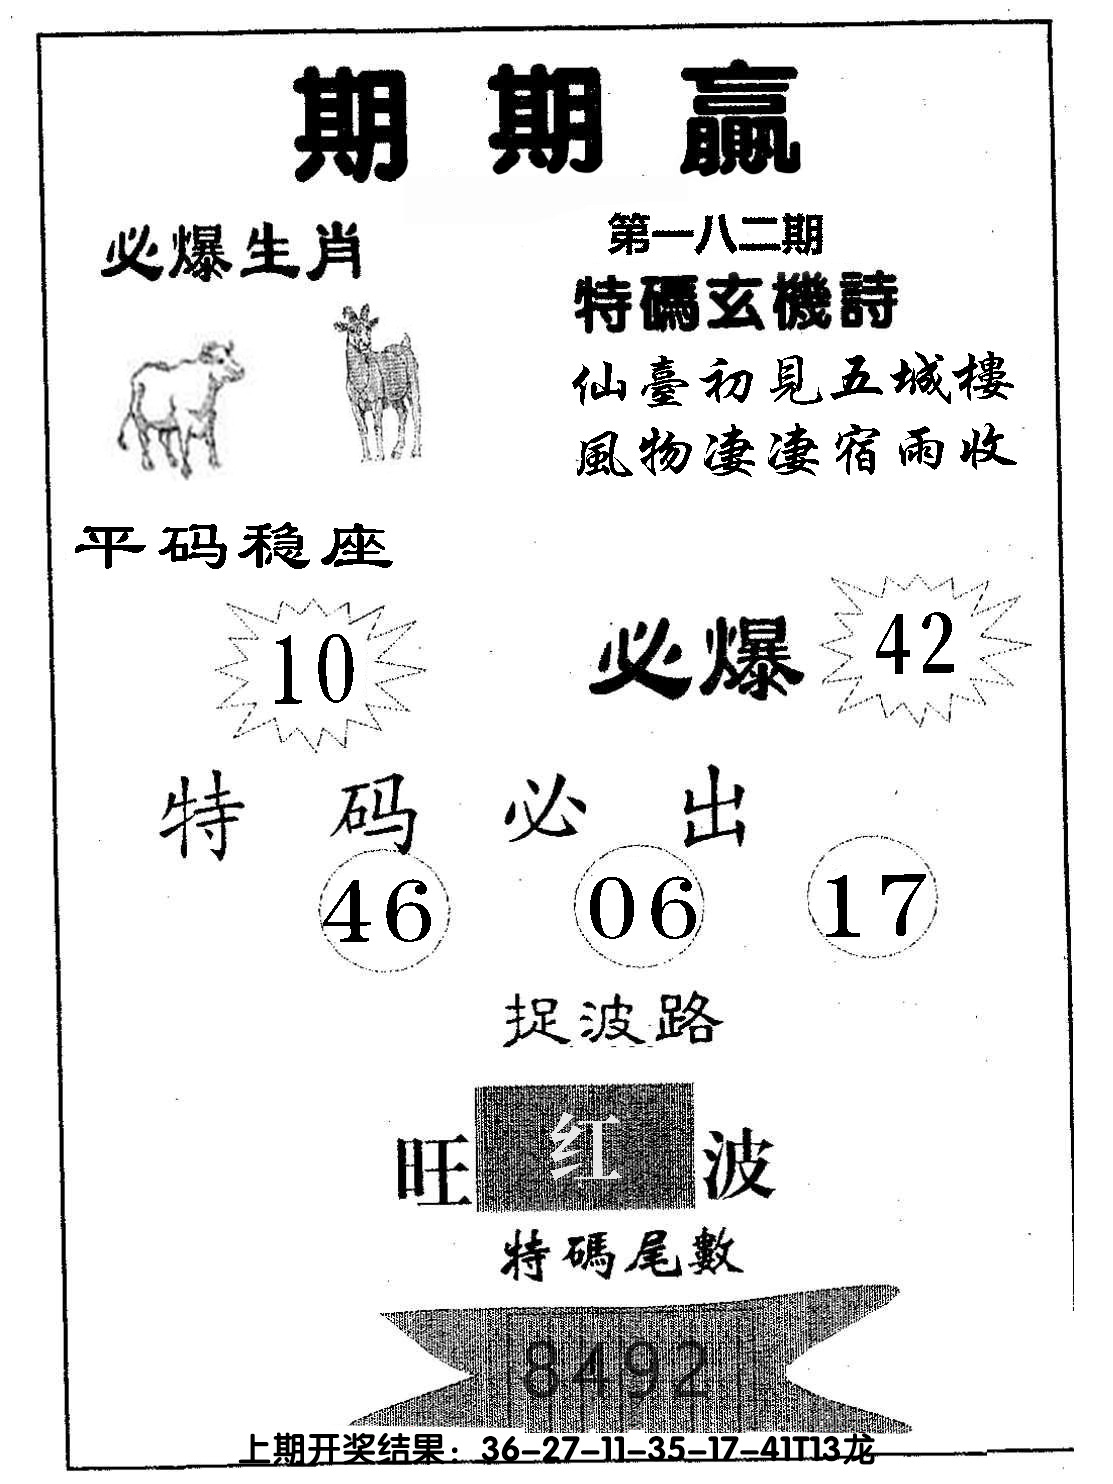 期期贏
必爆生肖
第一八二期
特碼玄機詩
仙臺初見五城樓
風物凄凄宿雨收
平码稳座
10
必爆
42
特码必出
46 06 17
捉波路
旺红波
特碼尾數
8492
上期开奖结果：36-27-11-35-17-41T13龙